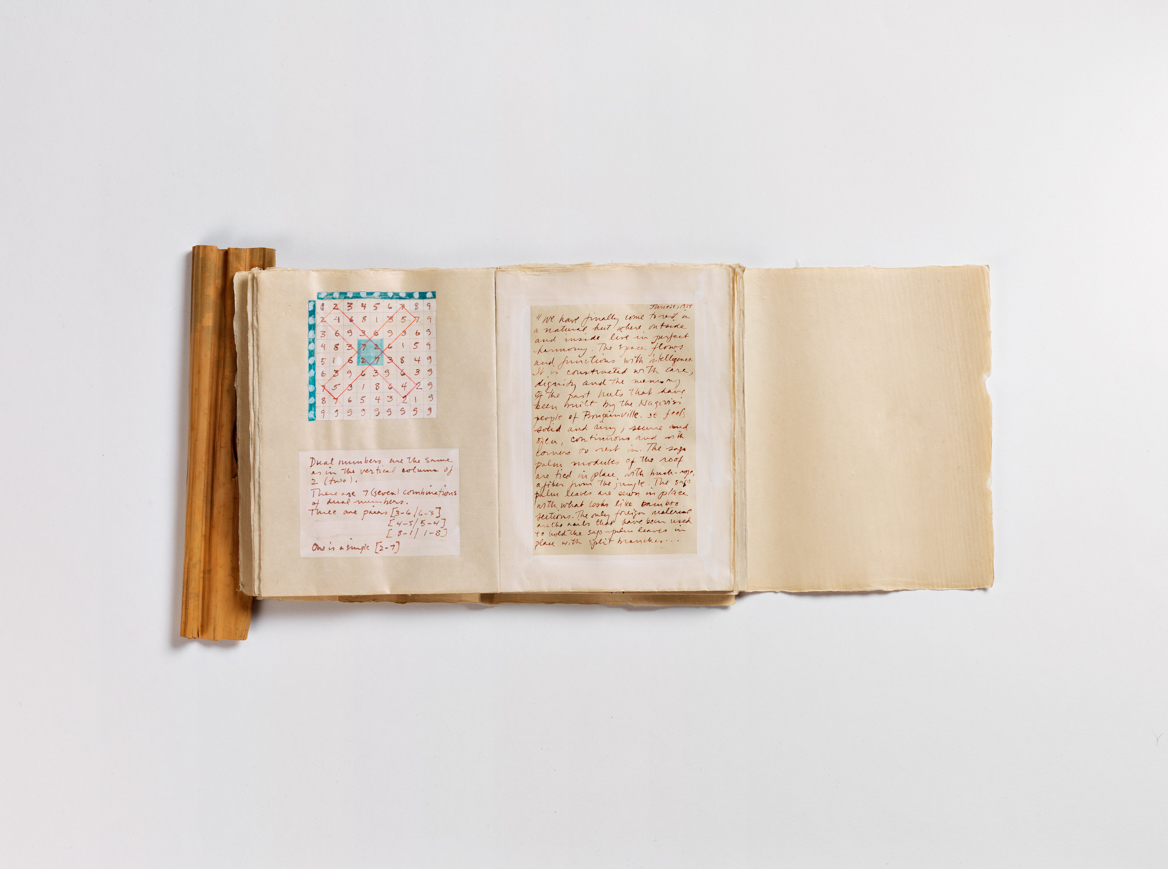 1 2 3 4 5 6 7 8 9
2 4 6 8 1 3 5 7 9
3 6 9 3 6 9 3 6 9
4 8 3 7 2 6 1 5 9
5 1 6 2 7 3 8 4 9
6 3 9 6 3 9 6 3 9
7 5 3 1 8 6 4 2 9
8 7 6 5 4 3 2 1 9
9 9 9 9 9 9 9 9 9
Dual numbers are the same
as in the vertical column of
2 (two).
There are 7 (seven) combinations
of dual numbers.
Three are pairs [3-6/6-3]
[4-5/5-4]
[8-1/1-8]
One is a single [2-7]
"We have finally come to rest in
a natural hut where outside
and inside live in perfect
harmony. The space flows
and functions with intelligence.
It is constructed with care,
dignity and the memory
of the past huts that have
been built by the Nagovisi
people of Bougainville. It feels
solid and airy, secure and
open, continuous and with
corners to rest in. The sago
palm modules of the roof
are tied in place with bush-rope,
a fiber from the jungle. The sago
palm leaves are sewn in place
with what looks like bamboo
sections. The only foreign material
are the nails that have been used
to hold the sago-palm leaves in
place with split branches...